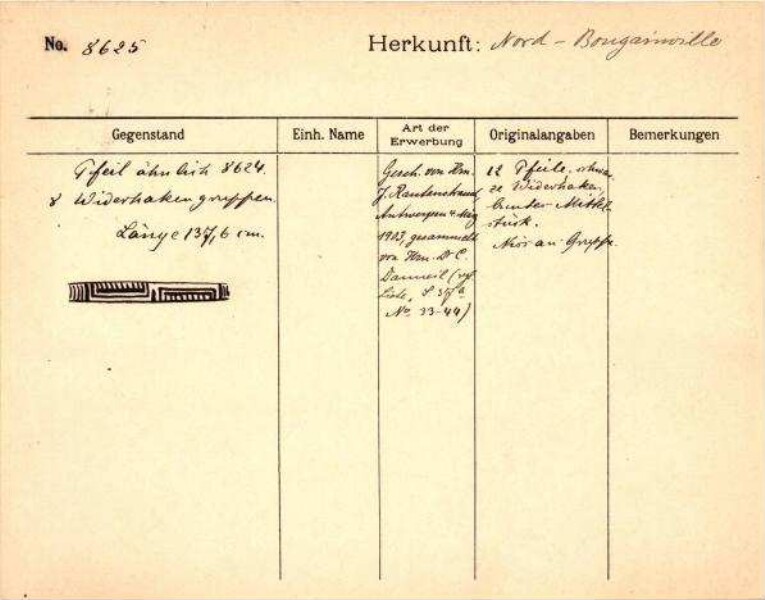 No. 8625
Herkunft: Nord - Bougainville
Gegenstand
Einh. Name
Art der Erwerbung
Originalangaben
Bemerkungen
Pfeil ähnlich 8624.
8 Widerhakengruppen.
Länge 137,6 cm.
Gesch. von Hrn.
J. Rautenstrauch,
Antwerpen 4. Mai
1903, gesammelt
von Hrn. Dr. C.
Danneil (vgl
Liste, S. 37a
No. 33-44)
12 Pfeile, schwar
ze Widerhaken,
bunter Mittel-
stück.
Gruppe.